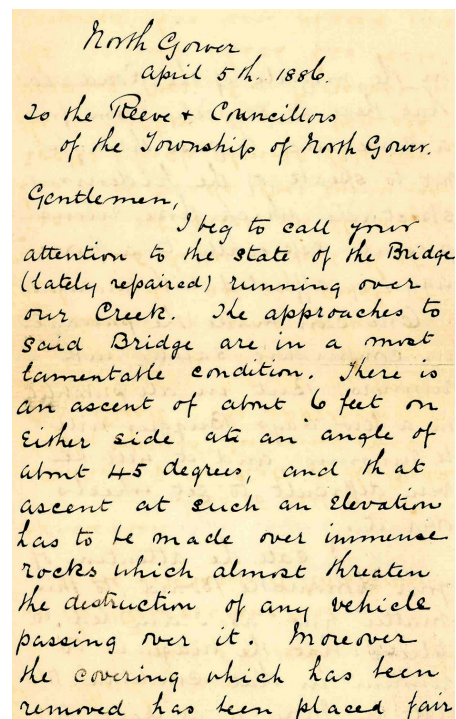 North Gower
April 5th. 1886.
To the Reeve + Councillors
of the Township of North Gower.
Gentlemen,
I beg to call your
attention to the state of the Bridge
(lately repaired) running over
our Creek. The approaches to
said Bridge are in a most
lamentable condition. There is
an ascent of about 6 feet on
Either side at an angle of
about 45 degrees, and that
ascent at such an Elevation
has to be made over immense
rocks which almost threaten
the destruction of any vehicle
passing over it. Moreover
the covering which has been
removed has been placed fair